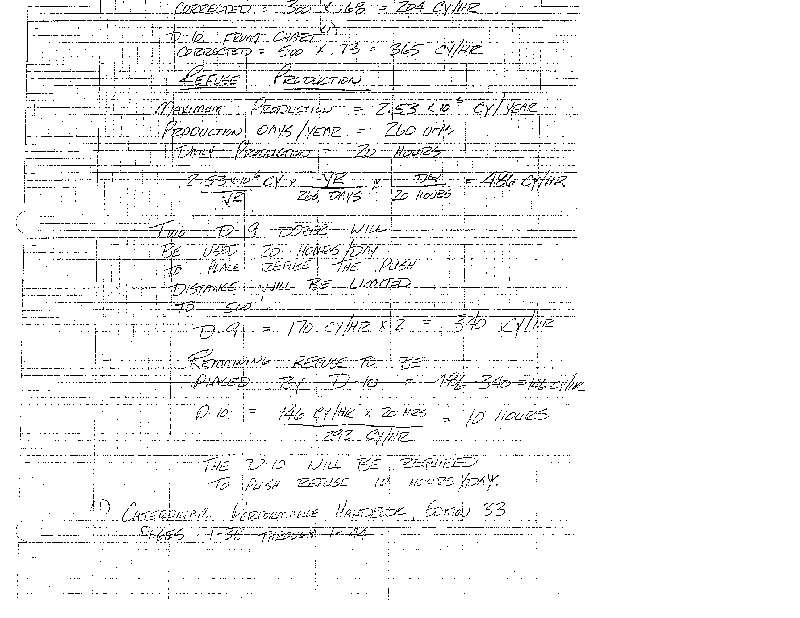 CORRECTED = 300 X .68 = 204 CY/HR
D 10 FROM CHART (1)
CORRECTED = 500 X .73 = 365 CY/HR
REFUSE PRODUCTION
MAXIMUM PRODUCTION = 2.53 X 10⁶ CY/YEAR
PRODUCTION DAYS/YEAR = 260 DAYS
DAILY PRODUCTION = 20 HOURS
2.53 X 10⁶ CY X YR X DAY = 486 CY/HR
YR 260 DAYS 20 HOURS
TWO D-9 DOZER WILL
BE USED 20 HOURS/DAY
TO PLACE REFUSE THE PUSH
DISTANCE WILL BE LIMITED
TO 500'
D-9 = 170 CY/HR X 2 = 340 CY/HR
REMAINING REFUSE TO BE
PLACED BY D-10 = 486-340 = 146 CY/HR
D 10 = 146 CY/HR X 20 HRS = 10 HOURS
292 CY/HR
THE D-10 WILL BE REQUIRED
TO PUSH REFUSE 10 HOURS/DAY.
(1) CATERPILLAR PERFORMANCE HANDBOOK, EDITION 33
PAGES THROUGH